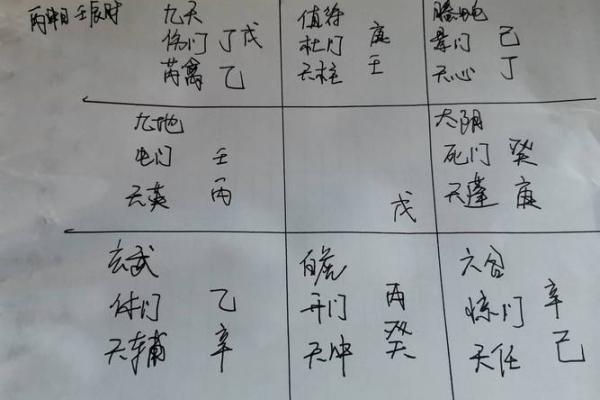 丙申日壬辰时
九天
伤门 丁戊
芮禽 乙
值符
杜门 庚
天柱 壬
腾蛇
景门 己
天心 丁
九地
生门 壬
天英 丙
戊
太阴
死门 癸
天蓬 庚
玄武
休门 乙
天辅 辛
白虎
开门 丙
天冲 癸
六合
惊门 辛
天任 己